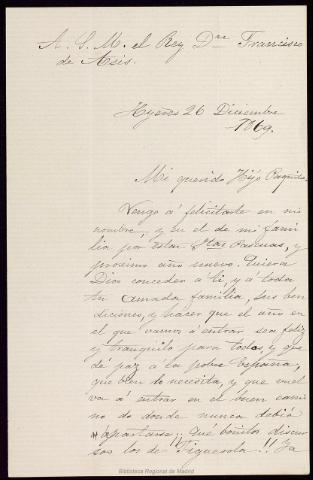 A. S. M. el Rey Dn Francisco
de Asis.
Hyeres 26 Diciembre
1869.
Mi querido Hijo Paquito
Vengo á felicitarte en mi
nombre, y en el de mi fami
lia por estas Stas Pascuas, y
proximo año nuevo. Quiera
Dios conceder á ti, y á toda
tu amada familia, sus ben
diciones, y hacer que el año en
el que vamos á entrar sea feliz
y tranquilo para todos, y que
dé paz á la pobre España,
que bien lo necesita, y que vuel
va á entrar en el buen cami
no de donde nunca debió
apartarse!! Qué bonitos discur
sos los de Figuerola!! Ya
Biblioteca Regional de Madrid